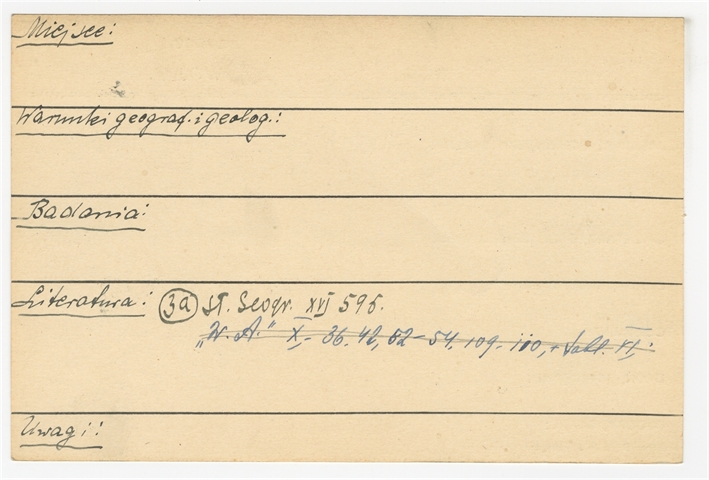 Miejsce:
Warunki geograf. i geolog.:
Badania:
Literatura: 3a Sł. Geogr. XVI 595.
"W. A." X, - 36. 42, 52 - 54. 109 - 110, + tabl. VI.
Uwagi: